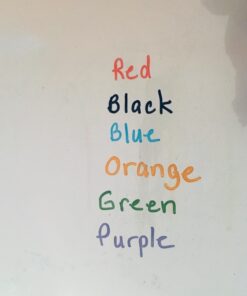 Red
Black
Blue
Orange
Green
Purple